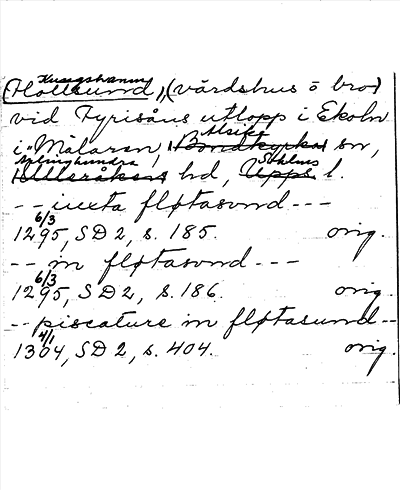 Kungshamn
(Flottsund), (värdshus o bro)
vid Fyrisåns utlopp i Ekoln
Alsike
i Mälaren, Bondkyrka sn,
Ärlinghundra Sthlms
Ulleråkers hd, Upps. l.
-- iuxta fløtasund ---
6/3
1295, SD 2, s. 185. orig.
-- in fløtasund ---
6/3
1295, SD 2, s. 186. orig.
-- piscature in fløtasund --
4/1
1304, SD 2, s. 404. orig.